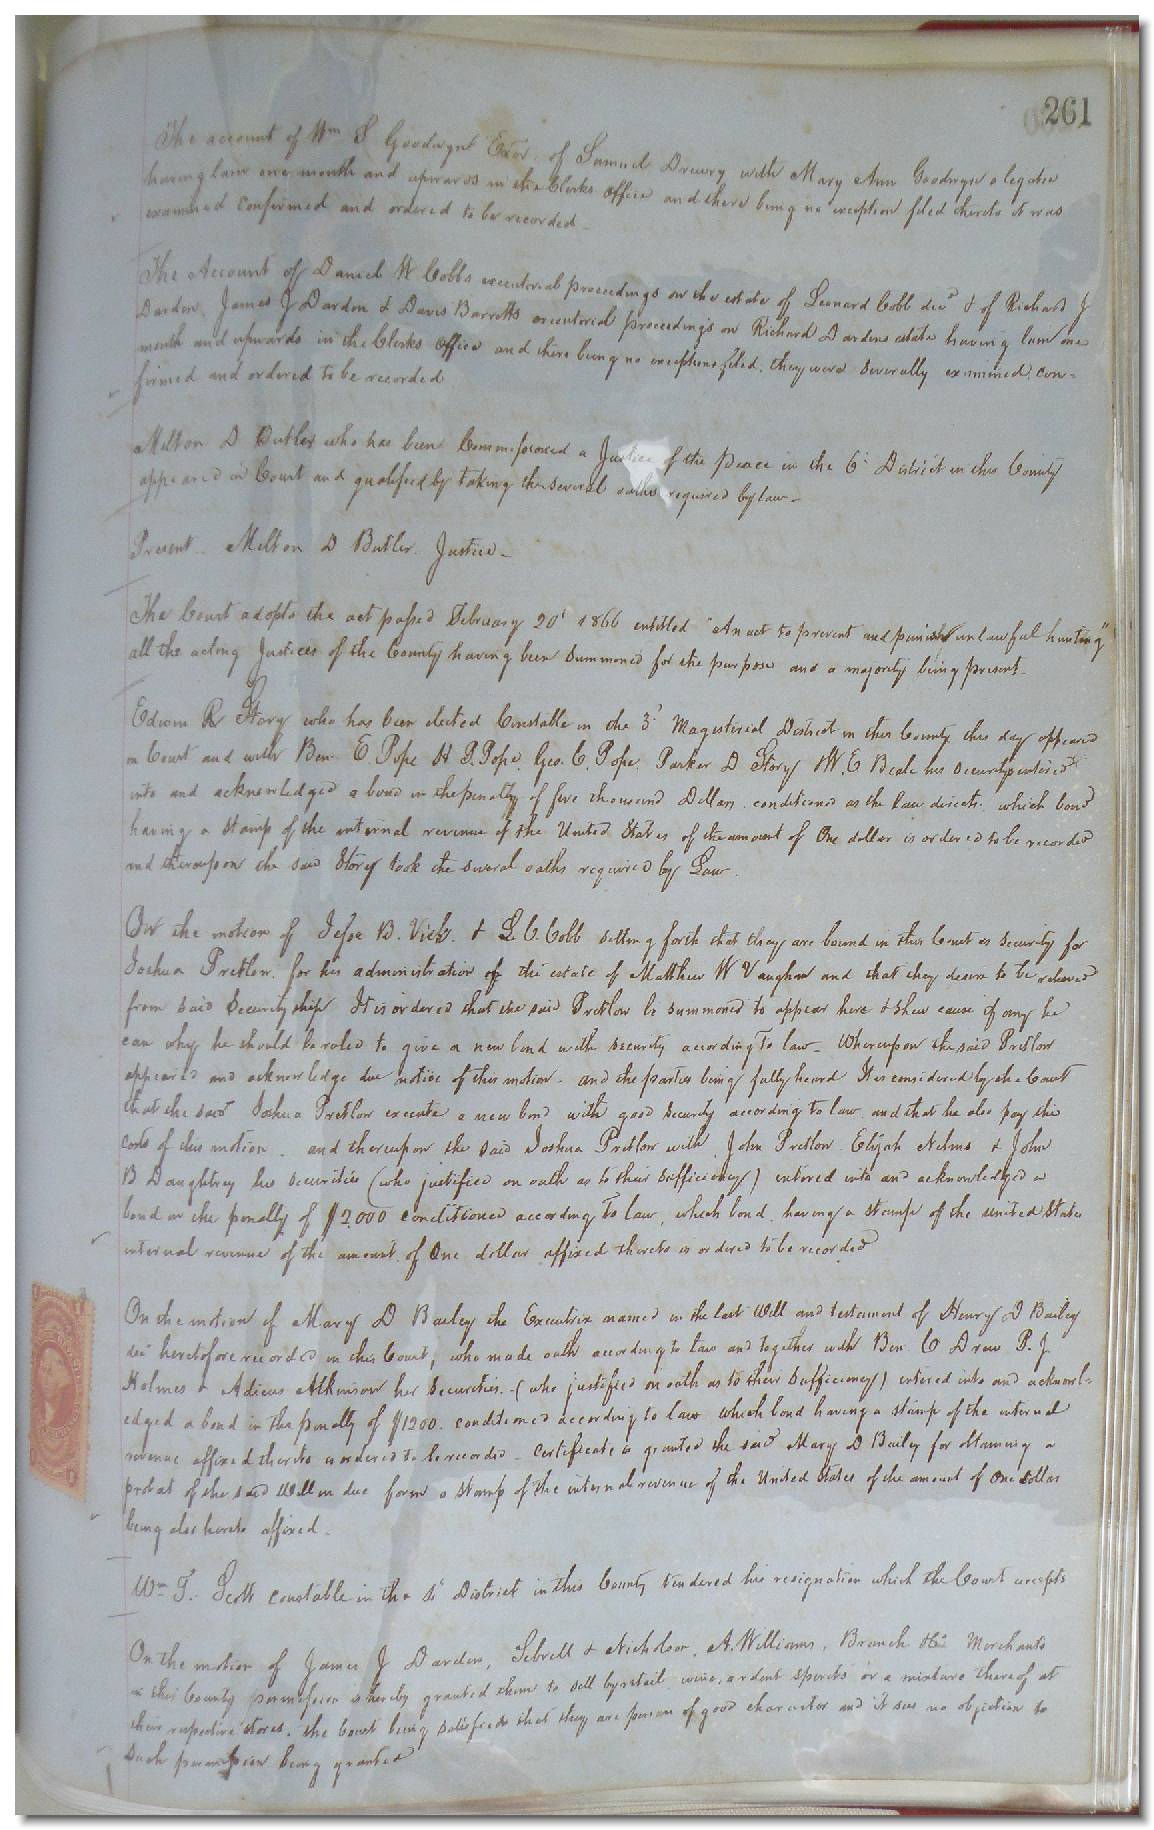 261
The account of Wm S Goodwyn Exor. of Samuel Drewry with Mary Ann Goodwyn a legatee
having lain one month and upwards in the Clerks Office and there being no exception filed thereto it was
examined confirmed and ordered to be recorded -
The Account of Daniel W Cobbs executorial proceedings on the estate of Leonard Cobb decd & of Richard J
Darden, James J Darden & Davis Barretts executorial proceedings on Richard Dardens estate having lain one
month and upwards in the Clerks Office and there being no exceptions filed, they were severally examined, con-
firmed and ordered to be recorded
Melton D Butler who has been Commissioned a Justice of the peace in the 6th District in this County
appeared in Court and qualified by taking the several oaths required by law -
Present. Melton D Butler. Justice -
The Court adopts the act passed February 20t 1866 entitled "An act to prevent and punish unlawful hunting"
all the acting Justices of the County having been summoned for the purpose and a majority being present -
Edwin R Story who has been elected Constable in the 3d Magisterial District in this County this day appeared
in Court and with Ben. E. Pope H P. Pope, Geo. C. Pope, Parker D Story W. E Beale his security entered
into and acknowledged a bond in the penalty of five thousand Dollars. conditioned as the law directs. which bond
having a stamp of the internal revenue of the United States of the amount of One dollar is ordered to be recorded
and thereupon the said Story took the several oaths required by Law.
On the motion of Jesse B. Vick. & L. C. Cobb setting forth that they are bound in this Court as security for
Joshua Pretlow. for his administration of the estate of Matthew W Vaughan and that they desire to be relieved
from said securityship It is ordered that the said Pretlow be summoned to appear here & shew cause if any he
can why he should be ruled to give a new bond with security according to law - Whereupon the said Pretlow
appeared and acknowledge due notice of this motion - and the parties being fully heard It is considered by the Court
that the said Joshua Pretlow execute a new bond with good security according to law, and that he also pay the
costs of this motion. and thereupon the said Joshua Pretlow with John Pretlow Elijah Nelms & John
B Daughtrey his securities (who justified on oath as to their sufficiency) entered into and acknowledged a
bond in the penalty of $2,000 conditioned according to law, which bond, having a stamp of the united States
internal revenue of the amount of One dollar affixed thereto is ordered to be recorded
On the motion of Mary D Bailey the Executrix named in the last Will and testament of Henry D Bailey
decd heretofore recorded in this Court, who made oath according to law and together with Ben. C Drew P. J.
Holmes & Aticus Atkinson her securities. (who justified on oath as to their sufficiency) entered into and acknowl-
edged a bond in the penalty of $1200. conditioned according to law which bond having a stamp of the internal
revenue affixed thereto is ordered to be recorded - certificate is granted the said Mary D Bailey for obtaining a
probat of the said Will in due form a stamp of the internal revenue of the United States of the amount of One dollar
being also hereto affixed.
Wm T. Scott constable in the District in this County tendered his resignation which the Court accepts
On the motion of James J Darden, Sebrell & Nicholson, A. Williams, Branch & Merchants
in this County permission is hereby granted them to sell by retail, wine, ardent spirits or a mixture thereof at
their respective stores, the Court being satisfied that they are person of good character and it sees no objection to
such permission being granted